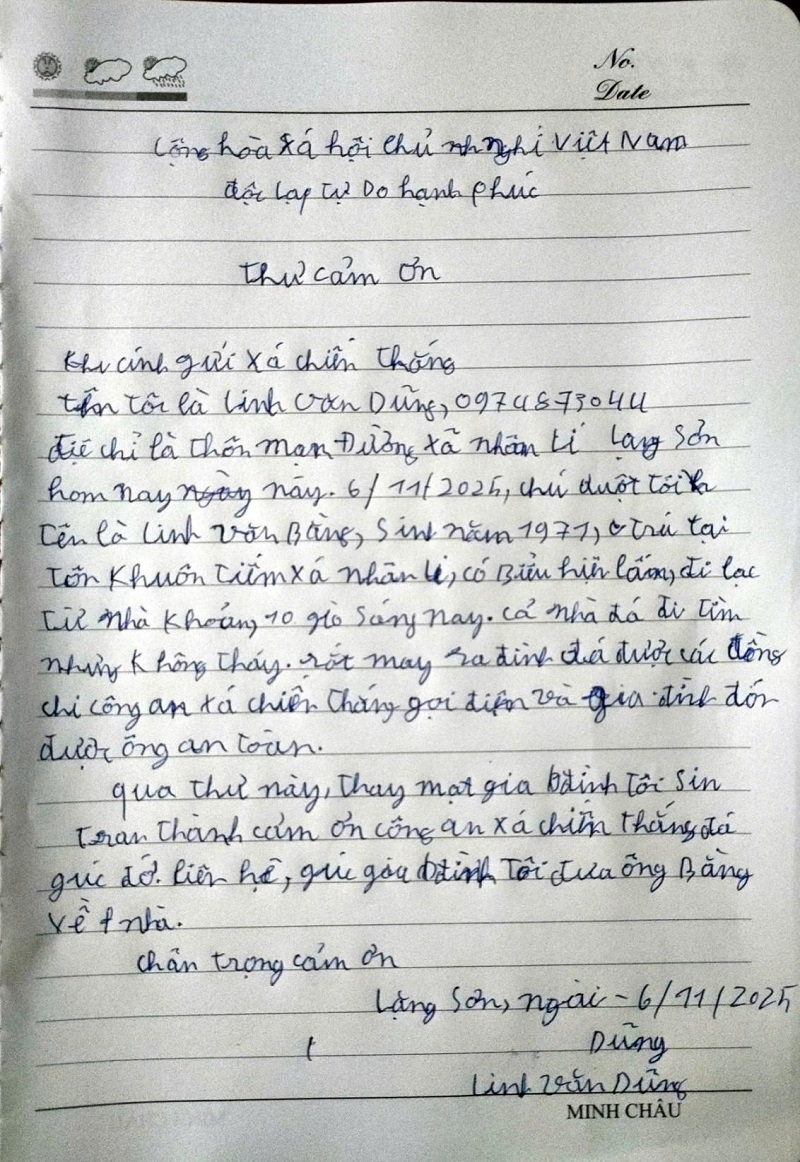 No.
Date
Cộng hòa xá hội chủ nghỉ Việt Nam
độc lạp tự Do hạnh phúc
thư cảm ơn
Kh cính gửi xá chiến thắng
tên tôi là Linh Văn Dũng, 0974873044
địẻ chỉ là thôn mạn Đường xã nhân Lí Lạng Sơn
hom nay này. 6/11/2025, chú duột tôi
Tên là Linh văn Bằng, Sinh năm 1971, trú tại
tôn Khuôn Tiếm xá nhân Lí, có Biểu hiện lẫm, đi lạc
Từ nhà Khoảng 10 giò sáng nay. cả nhà đá đi tìm
nhưng Không tháy. rất may ra đình đá được các đồng
chi công an xá chiến thắng gọi điện và gia đình đón
được ông an toàn.
qua thư này, thay mạt gia đình tôi Sin
tran thành cảm ơn công an xá chiến thắng đá
gúc đở. liên hệ, gúc gia đình tôi đưa ông Bằng
về nhà.
chân trọng cảm ơn
Lạng Sơn, ngài - 6/11/2025
Dũng
Linh văn Dũng
MINH CHÂU